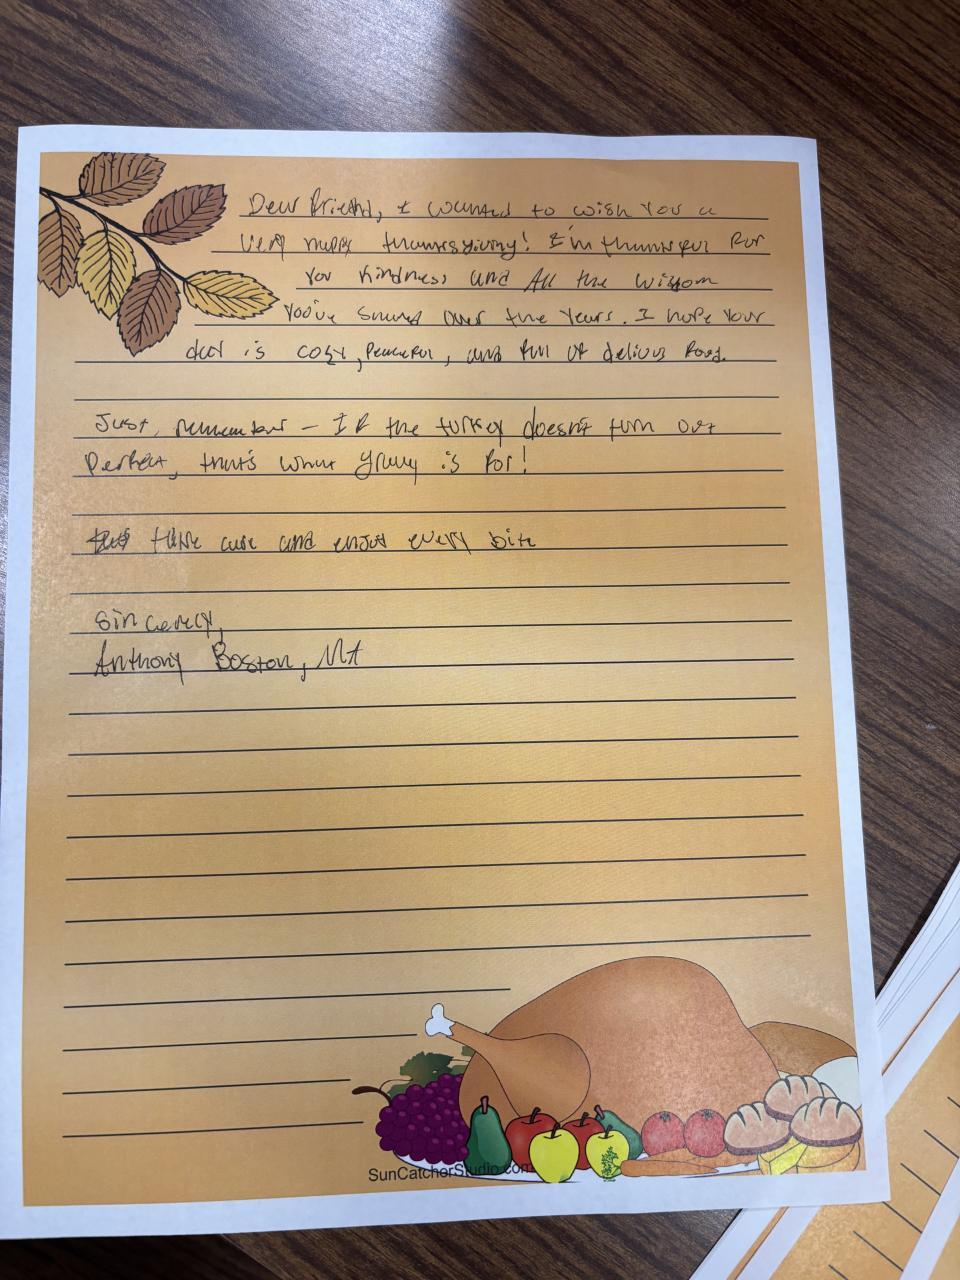 Dear Friend, I wanted to wish you a
very happy thanksgiving! I'm thankful for
your kindness and All the wisdom
you've shared over the years. I hope your
day is cozy, peaceful, and full of delious food.
Just, remember - If the turkey doesn't turn out
perfect, that's what gravy is for!
take care and enjoy every bite
Sincerely,
Anthony Boston, MA
SunCatcherStudio.com